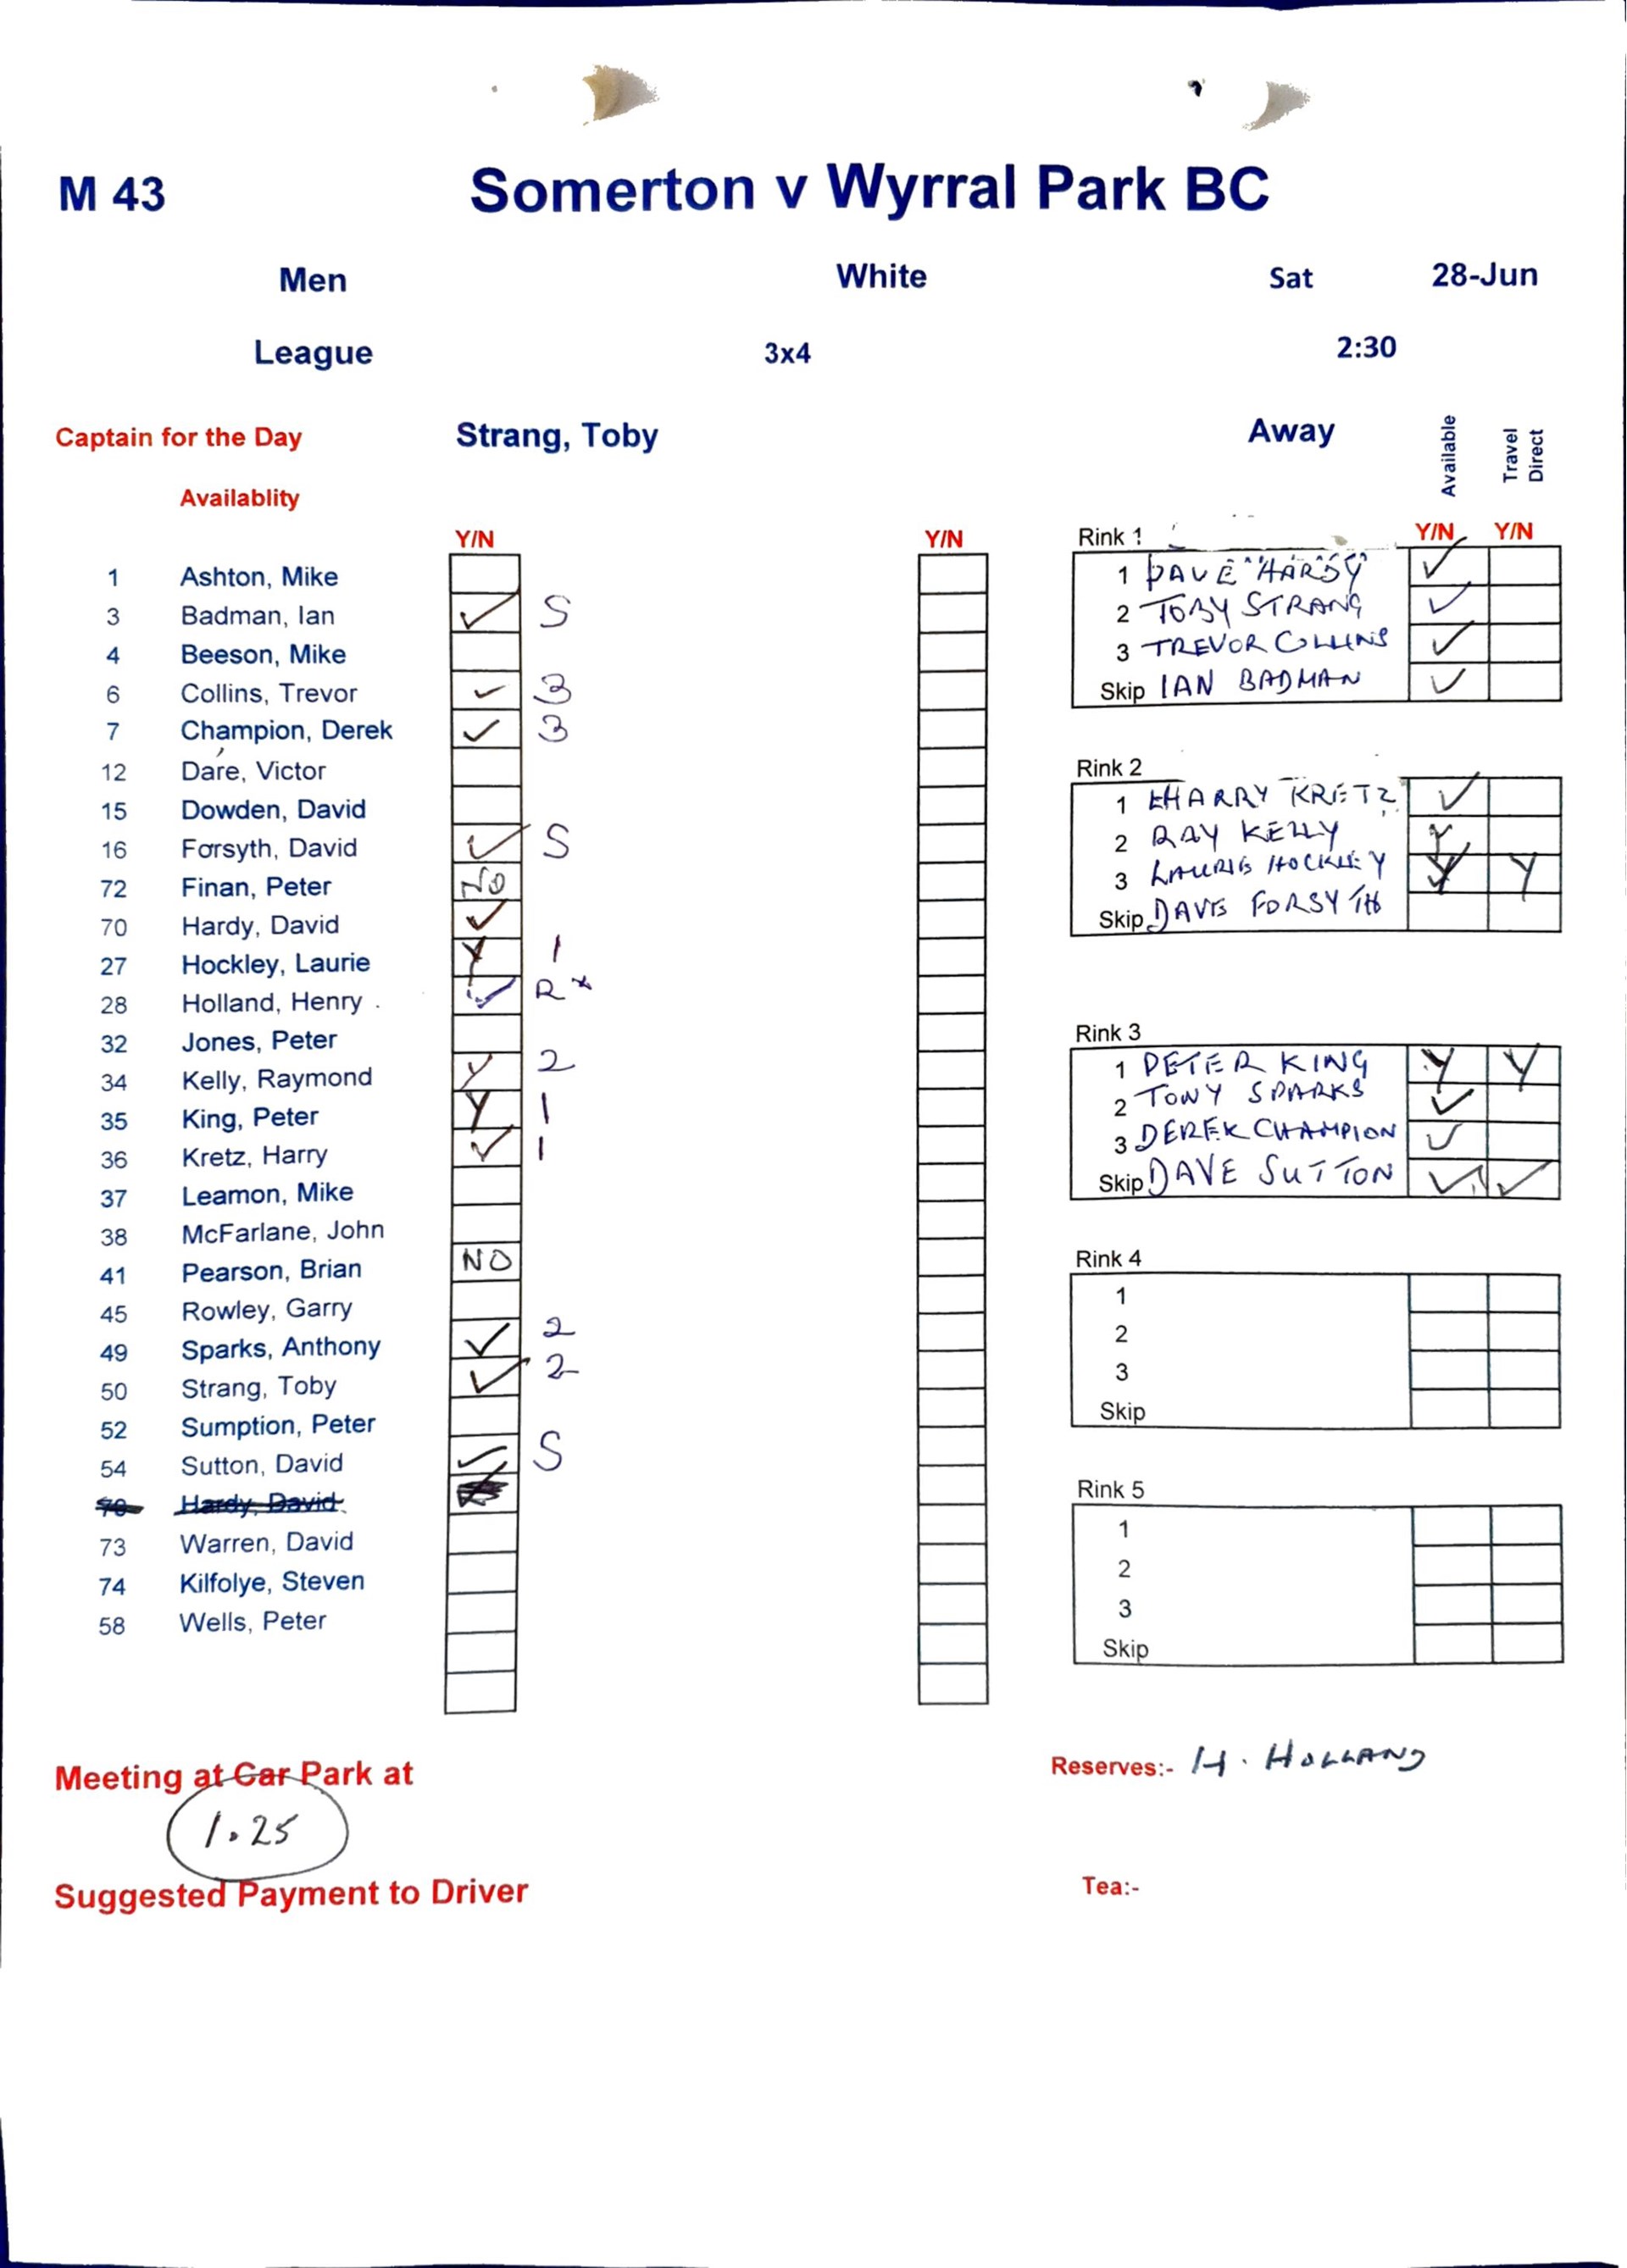 M 43 Somerton v Wyrral Park BC
Men White Sat 28-Jun
League 3x4 2:30
Captain for the Day Strang, Toby Away Available Travel Direct
Availablity
Y/N Y/N
1 Ashton, Mike
3 Badman, Ian ✓ S
4 Beeson, Mike
6 Collins, Trevor ✓ 3
7 Champion, Derek ✓ 3
12 Dare, Victor
15 Dowden, David
16 Forsyth, David ✓ S
72 Finan, Peter No
70 Hardy, David ✓
27 Hockley, Laurie Y 1
28 Holland, Henry ✓ R*
32 Jones, Peter
34 Kelly, Raymond Y 2
35 King, Peter Y 1
36 Kretz, Harry ✓ 1
37 Leamon, Mike
38 McFarlane, John
41 Pearson, Brian NO
45 Rowley, Garry
49 Sparks, Anthony ✓ 2
50 Strang, Toby ✓ 2
52 Sumption, Peter
54 Sutton, David ✓ S
70 Hardy, David
73 Warren, David
74 Kilfolye, Steven
58 Wells, Peter
Rink 1 Y/N Y/N
1 DAVE HARDY ✓
2 TOBY STRANG ✓
3 TREVOR COLLINS ✓
Skip IAN BADMAN ✓
Rink 2
1 HARRY KRETZ ✓
2 RAY KELLY Y
3 LAURIE HOCKLEY Y Y
Skip DAVE FORSYTH
Rink 3
1 PETER KING Y Y
2 TONY SPARKS ✓
3 DEREK CHAMPION ✓
Skip DAVE SUTTON ✓ ✓
Rink 4
1
2
3
Skip
Rink 5
1
2
3
Skip
Meeting at Car Park at
1.25
Suggested Payment to Driver
Reserves:- H. HOLLAND
Tea:-